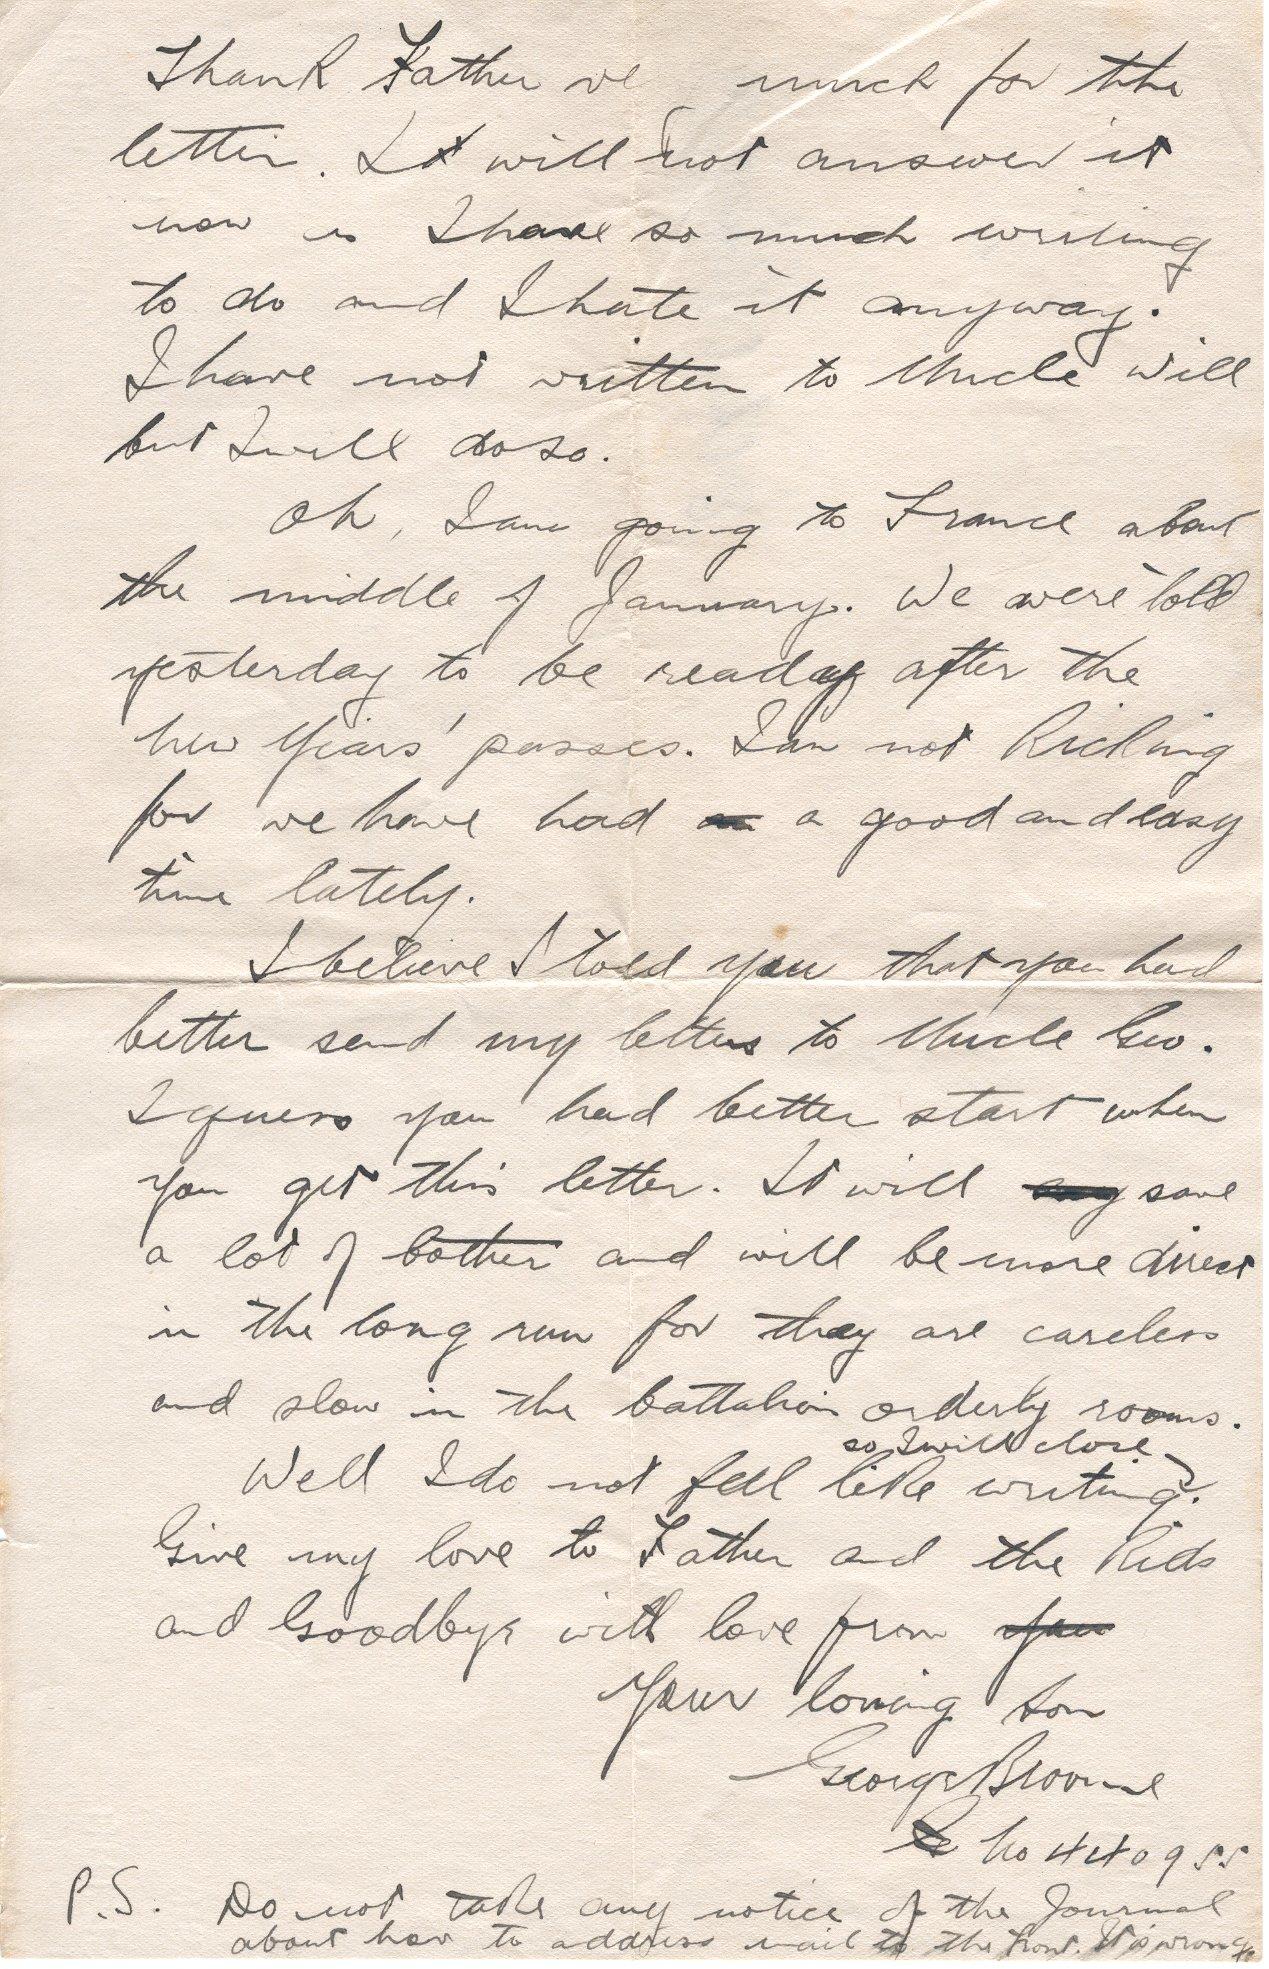 Thank Father ve much for the
letter. I will not answer it
now as I have so much writing
to do and I hate it anyway.
I have not written to Uncle Will
but I will do so.
Oh, I am going to France about
the middle of January. We were told
yesterday to be ready after the
New Years' passes. I am not kicking
for we have had a good and easy
time lately.
I believe I told you that you had
better send my letters to Uncle Geo.
I guess you had better start when
you get this letter. It will save
a lot of bother and will be more direct
in the long run for they are careless
and slow in the battalion orderly rooms.
so I will close
Well I do not feel like writing.
Give my love to Father and the kids
and Goodbye with love from you
Your loving son
George Broome
No 440955
P.S. Do not take any notice of the Journal
about how to address mail to the front. It is wrong.